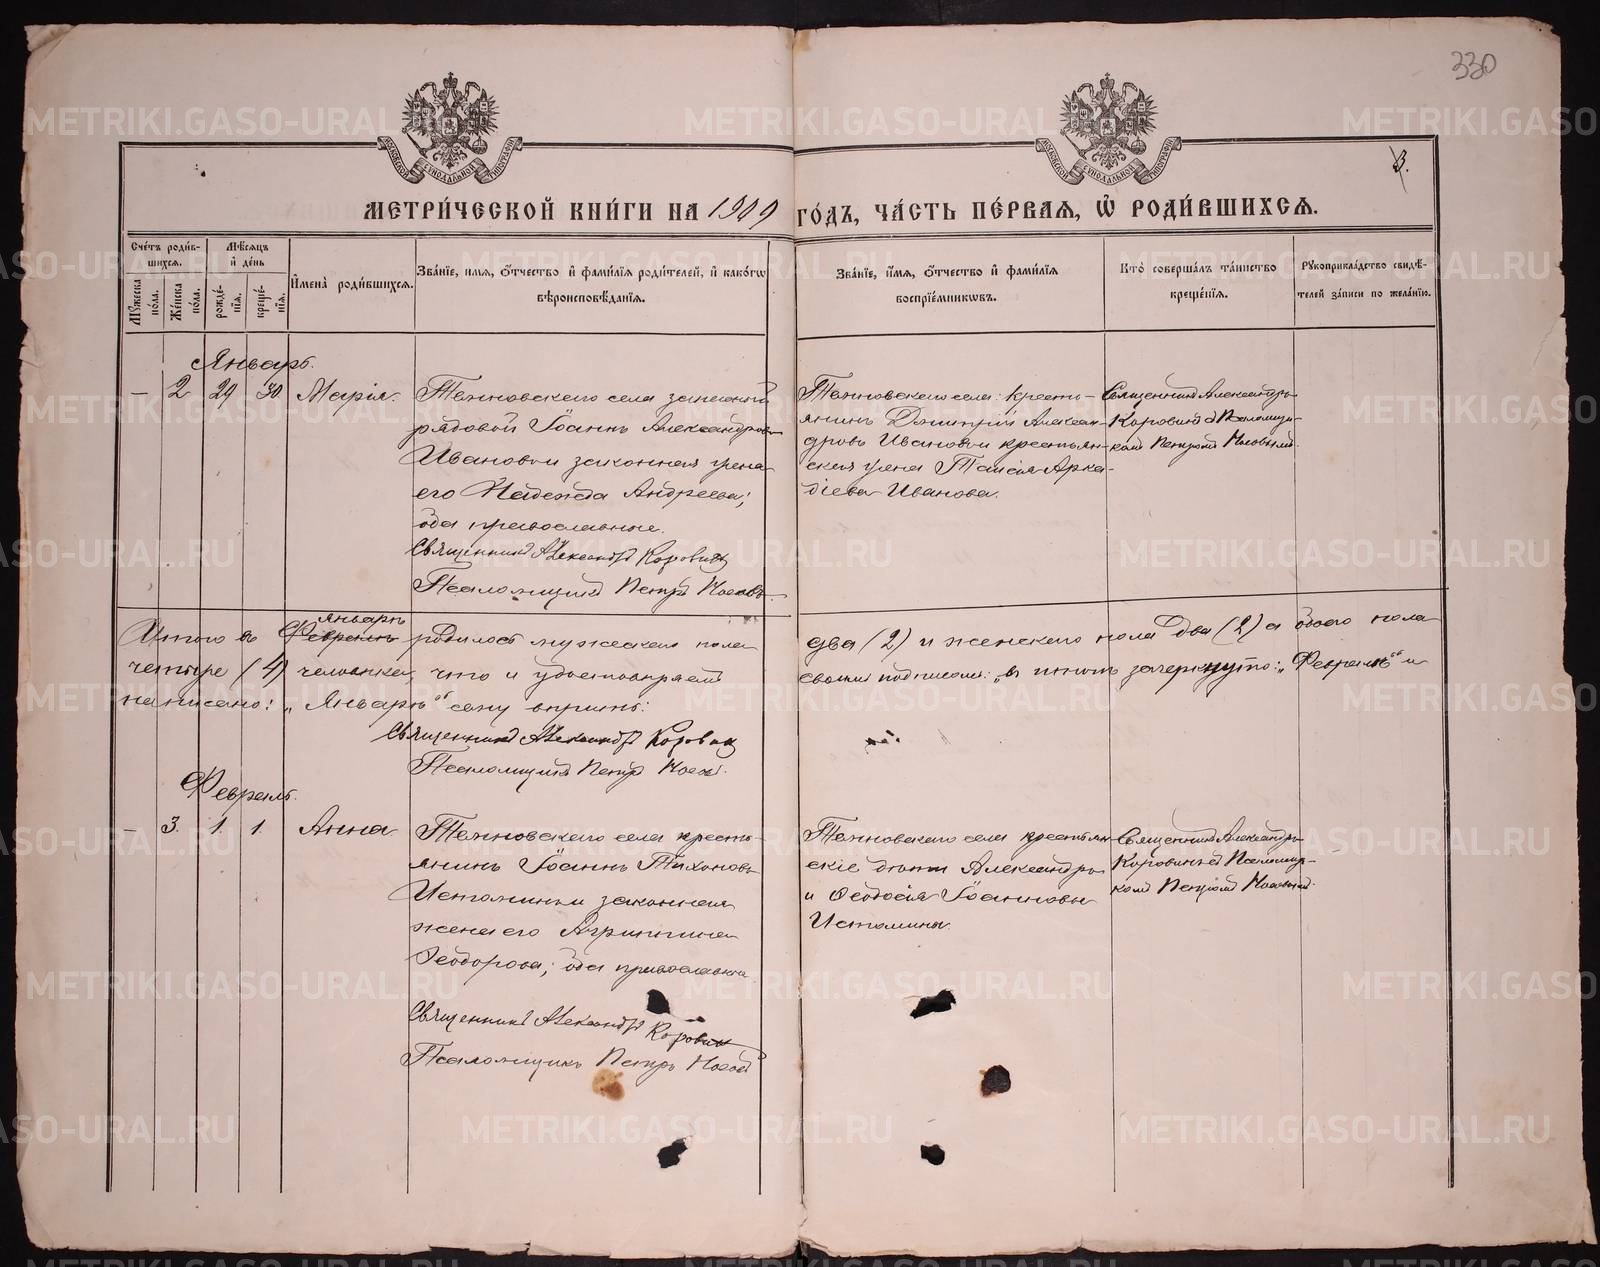 330
3.
МОСКОВСКОЙ СѴНОДАЛЬНОЙ ТИПОГРАФІИ
МОСКОВСКОЙ СѴНОДАЛЬНОЙ ТИПОГРАФІИ
МЕТРИ́ЧЕСКОЙ КНИ́ГИ НА 1909 ГО́ДЪ, ЧА́СТЬ ПЕ́РВАЯ, Ѡ҆ РОДИ́ВШИХСЯ.
Сче́тъ роди́вшихся.
Мѣ́сяцъ и҆ де́нь
Мꙋ́жеска по́ла.
Же́нска по́ла.
рожде́нїѧ.
креще́нїѧ.
И҆мена̀ роди́вшихсѧ.
Зва́нїе, и҆́мѧ, ѻ҆́тчество и҆ фами́лїѧ роди́телей, и҆ како́гѡ
вѣроисповѣ́данїѧ.
Зва́нїе, и҆́мѧ, ѻ҆́тчество и҆ фами́лїѧ
воспрїе́мникѡвъ.
Кто̀ соверша́лъ та́инство
креще́нїѧ.
Рꙋкоприкла́дство свидѣ́-
телей за́писи по жела́нїю.
Январь.
— 2 29 30 Марія.
села запасной
рядовой Іоаннъ Александровъ
Ивановъ и законная жена
его Надежда Андреева;
оба православные.
Священникъ Александръ Коровинъ
Псаломщикъ Петръ Носовъ.
села кресть-
янинъ Димитрій Алексан-
дровъ Ивановъ и крестьян-
ская жена Таисія Арка-
діева Иванова.
Священникъ Александръ
Коровинъ съ Псаломщи-
комъ Петромъ Носовымъ.
Итого въ Февралѣ январѣ родилось мужескаго пола два (2) и женскаго пола два (2) а обоего пола
четыре (4) человѣка, что и удостовѣряемъ своимъ подписомъ: „въ итогѣ зачеркнуто: „Февралѣ“ и
написано: „Январѣ“ сему вѣрить:
Священникъ Александръ Коровинъ
Псаломщикъ Петръ Носовъ.
Февраль.
— 3. 1. 1. Анна
села кресть-
янинъ Іоаннъ Тихоновъ
Истоминъ и законная
жена его Агриппина
Феодорова; оба православные
Священникъ Александръ Коровинъ
Псаломщикъ Петръ Носовъ
села крестьян-
скіе дѣти Александръ
и Феодосія Іоанновы
Истомины.
Священникъ Александръ
Коровинъ съ Псаломщи-
комъ Петромъ Носовымъ.
METRIKI.GASO-URAL.RU